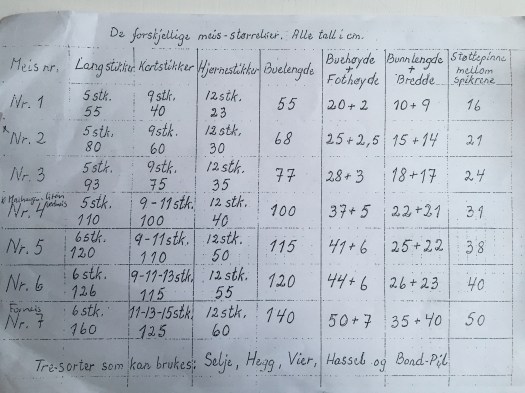 De forskjellige meis-størrelser. Alle tall i cm.
Meis nr. Langstikker Kortstikker Hjørnestikker Buelengde Buehøyde + Fothøyde Bunnlengde + Bredde Støttepinne mellom spikrene
Nr. 1 5 stk. 55 9 stk. 40 12 stk. 23 55 20+2 10+9 16
Nr. 2 5 stk. 80 9 stk. 60 12 stk. 30 68 25+2,5 15+14 21
Nr. 3 5 stk. 93 9 stk. 75 12 stk. 35 77 28+3 18+17 24
Nr. 4 5 stk. 110 9-11 stk. 100 12 stk. 40 100 37+5 22+21 31
Nr. 5 6 stk. 120 9-11 stk. 110 12 stk. 50 115 41+6 25+22 38
Nr. 6 6 stk. 126 9-11-13 stk. 115 12 stk. 55 120 44+6 26+23 40
Formeis Nr. 7 6 stk. 160 11-13-15 stk. 125 12 stk. 60 140 50+7 35+40 50
Tre-sorter som kan brukes: Selje, Hegg, Vier, Hassel og Bond-Pil